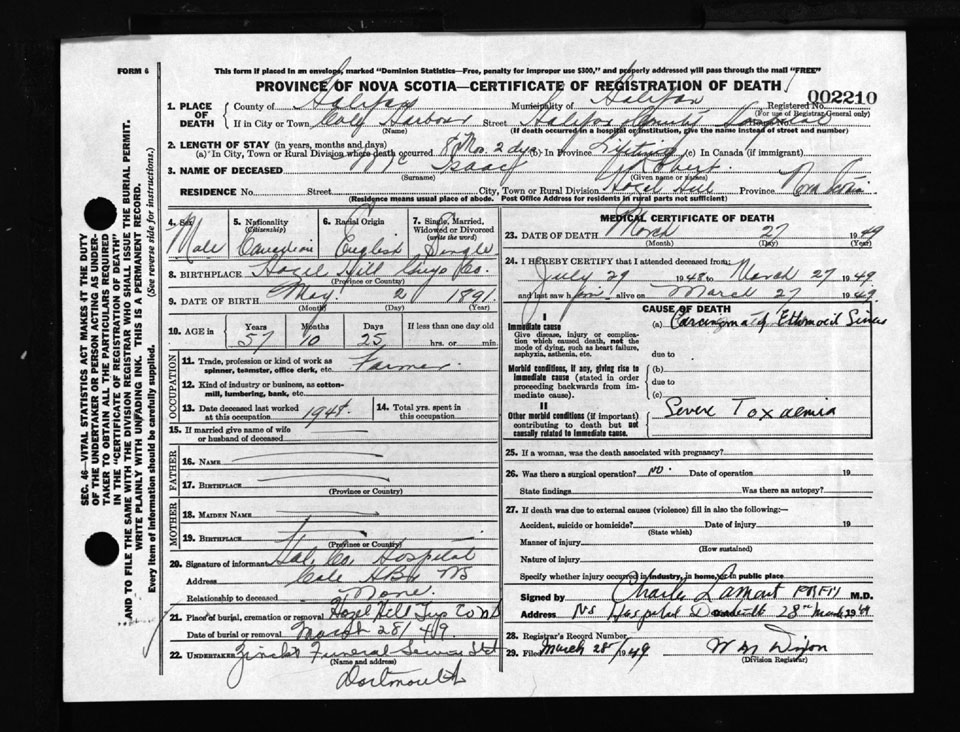 FORM 6
This form if placed in an envelope, marked "Dominion Statistics—Free, penalty for improper use $300," and properly addressed will pass through the mail "FREE"
PROVINCE OF NOVA SCOTIA—CERTIFICATE OF REGISTRATION OF DEATH
002210
1. PLACE OF DEATH
County of Halifax Municipality of Halifax Registered No.
(For use of Registrar General only)
If in City or Town Cole Harbour Street Halifax County Hospital
(Name) (If death occurred in a hospital or institution, give the name instead of street and number)
2. LENGTH OF STAY (in years, months and days)
(a) In City, Town or Rural Division where death occurred 8 Mo. 2 dys (b) In Province Lifetime (c) In Canada (if immigrant)
3. NAME OF DECEASED Isaac Robert
(Surname) (Given name or names)
RESIDENCE No. Street City, Town or Rural Division Hazel Hill Province Nova Scotia
(Residence means usual place of abode. Post Office Address for residents in rural parts not sufficient)
4. Sex Male
5. Nationality (Citizenship) Canadian
6. Racial Origin English
7. Single, Married, Widowed or Divorced (write the word) Single
8. BIRTHPLACE Hazel Hill Guys Co.
(Province or Country)
9. DATE OF BIRTH May 2 1891
(Month) (Day) (Year)
10. AGE in Years Months Days If less than one day old
57 10 25 hrs. or min.
OCCUPATION
11. Trade, profession or kind of work as spinner, teamster, office clerk, etc. Farmer
12. Kind of industry or business, as cotton-mill, lumbering, bank, etc.
13. Date deceased last worked at this occupation 1948
14. Total yrs. spent in this occupation
15. If married give name of wife or husband of deceased
FATHER
16. NAME
17. BIRTHPLACE
(Province or Country)
MOTHER
18. MAIDEN NAME
19. BIRTHPLACE
(Province or Country)
20. Signature of informant Hal. Co. Hospital
Address Cole Hbr NS
Relationship to deceased None
21. Place of burial, cremation or removal Hazel Hill Guy Co NS
Date of burial or removal March 28/49
22. UNDERTAKER Zinck's Funeral Service Ltd
(Name and address)
Dartmouth
MEDICAL CERTIFICATE OF DEATH
23. DATE OF DEATH March 27 1949
(Month) (Day) (Year)
24. I HEREBY CERTIFY that I attended deceased from
July 29 1948 to March 27 1949
and last saw him alive on March 27 1949
CAUSE OF DEATH
I
Immediate cause
Give disease, injury or complication which caused death, not the mode of dying, such as heart failure, asphyxia, asthenia, etc.
(a) Carcinoma of Ethmoid Sinus
due to
Morbid conditions, if any, giving rise to immediate cause (stated in order proceeding backwards from immediate cause).
(b)
due to
(c)
II
Other morbid conditions (if important) contributing to death but not causally related to immediate cause.
Severe Toxaemia
25. If a woman, was the death associated with pregnancy?
26. Was there a surgical operation? No. Date of operation 19
State findings Was there an autopsy?
27. If death was due to external causes (violence) fill in also the following:—
Accident, suicide or homicide? Date of injury 19
(State which)
Manner of injury
(How sustained)
Nature of injury
Specify whether injury occurred in industry, in home, or in public place
Signed by Charles Lamont M.D.
Address NS Hospital Dartmouth 28th March 1949
28. Registrar's Record Number
29. Filed March 28/1949 Dixon
(Division Registrar)
SEC. 46—VITAL STATISTICS ACT MAKES IT THE DUTY
OF THE UNDERTAKER OR PERSON ACTING AS UNDER-
TAKER TO OBTAIN ALL THE PARTICULARS REQUIRED
IN THE "CERTIFICATE OF REGISTRATION OF DEATH"
AND TO FILE THE SAME WITH THE DIVISION REGISTRAR WHO SHALL ISSUE THE BURIAL PERMIT.
WRITE PLAINLY WITH UNFADING INK. THIS IS A PERMANENT RECORD.
Every item of information should be carefully supplied. (See reverse side for instructions.)